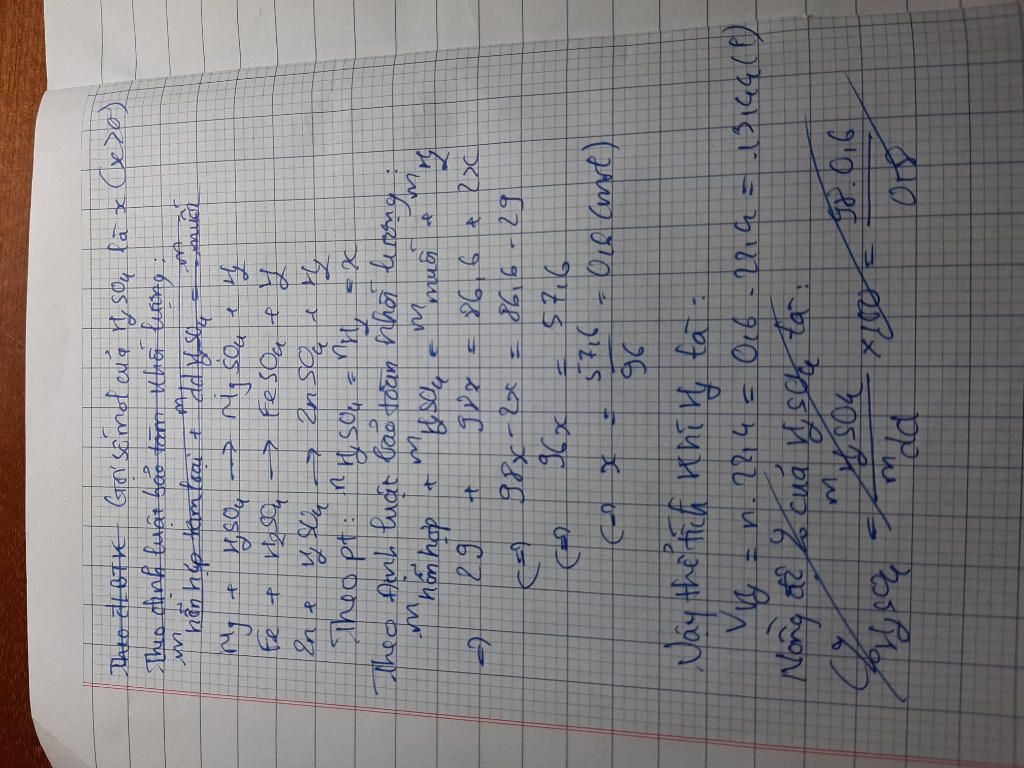 Theo ĐLBTK Gọi số mol của H2SO4 là x (x>0)
Theo định luật bảo toàn khối lượng:
m hỗn hợp kim loại + m dd H2SO4 = m muối
Mg + H2SO4 → MgSO4 + H2
Fe + H2SO4 → FeSO4 + H2
Zn + H2SO4 → ZnSO4 + H2
Theo pt: n H2SO4 = n H2 = x
Theo định luật bảo toàn khối lượng:
m hỗn hợp + m H2SO4 = m muối + m H2
=> 29 + 98x = 86,6 + 2x
(=> 98x - 2x = 86,6 - 29
(=> 96x = 57,6
(=> x = 57,6/96 = 0,6 (mol)
Vậy thể tích khí H2 là:
V H2 = n.22,4 = 0,6.22,4 = 13,44 (l)
Nồng độ % của H2SO4 là:
C% H2SO4 = m H2SO4 / m dd × 100 = 98.0,6